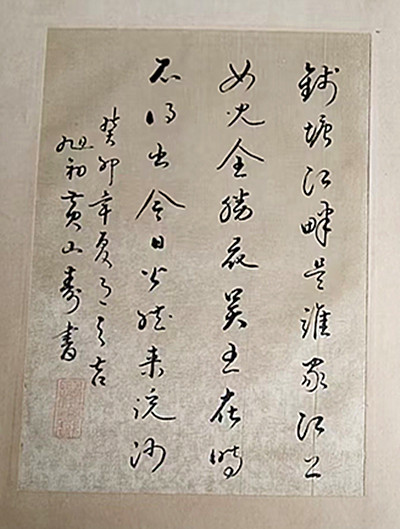 錢塘江畔是誰家江上
女児全勝花吴王在時
不得出今日公然来浣沙
癸卯年夏之吉
旭初黄山壽書